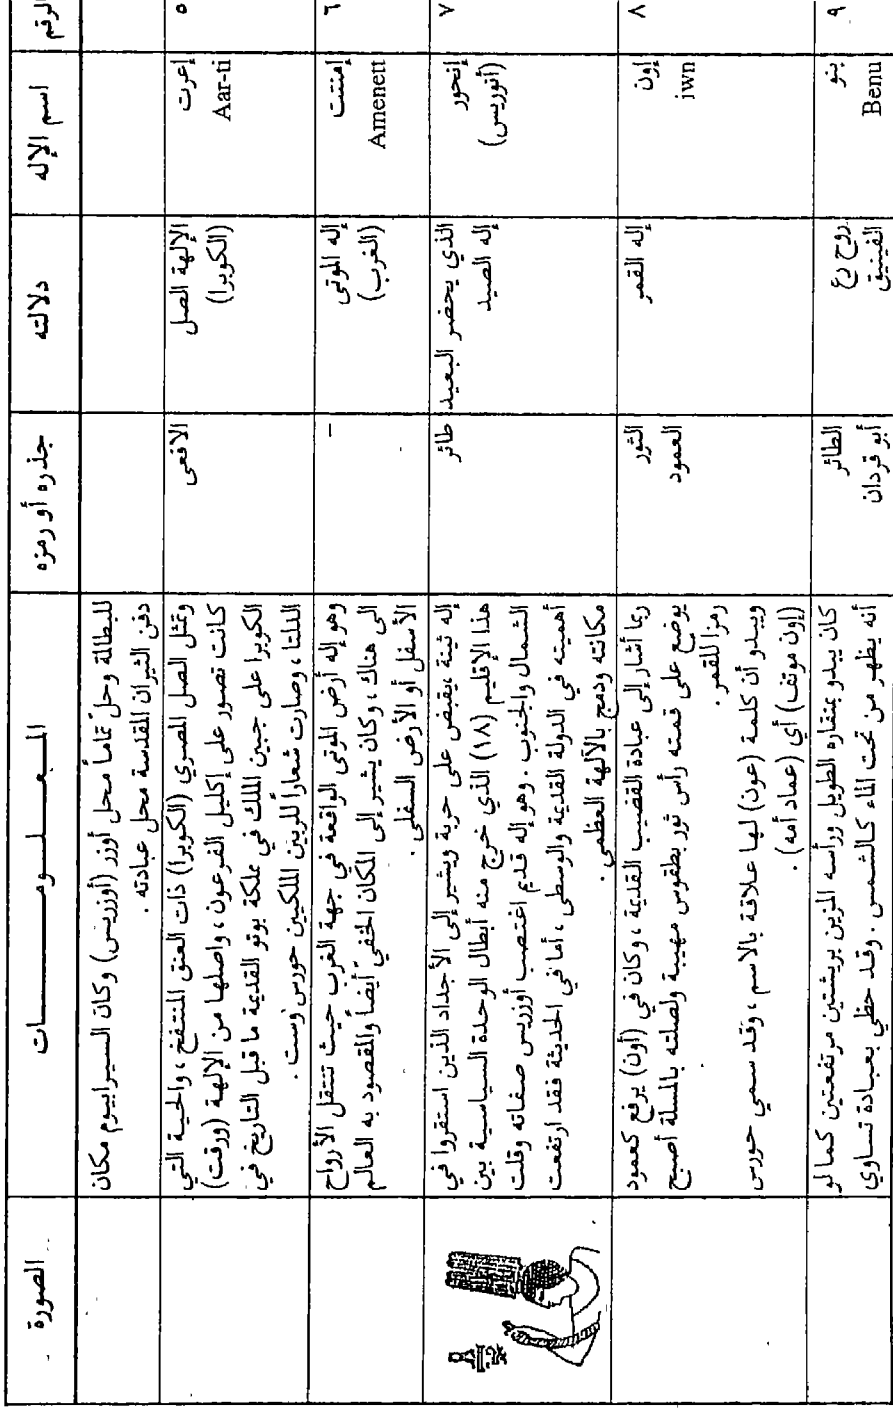 الرقم
اسم الإله
دلالته
جذره أو رمزه
المعلومات
الصورة
للبطالة وحلّ تماماً محل أوزر (أوزريس) وكان السيرابيوم مكان
دفن الثيران المقدسة محل عبادته .
٥
إعرت
Aar-ti
الإلهة الصل
(الكوبرا)
الافعى
وتمثل الصل المصري (الكوبرا) ذات العنق المنتفخ ، والحية التي
كانت تصور على إكليل الفرعون ، واصلها من الإلهة (ورقت)
الكوبرا على جبين الملك في مملكة بوتو القديمة ما قبل التاريخ في
الدلتا ، وصارت شعاراً للربين الملكيين حورس وست .
٦
إمنتت
Amenett
إله الموتى
(الغرب)
–
وهو إله أرض الموتى الواقعة في جهة الغرب حيث تنتقل الأرواح
الى هناك ، وكان يشير إلى المكان الخفيّ أيضاً والمقصود به العالم
الأسفل أو الأرض السفلى .
٧
إنحور
(أنوريس)
الذي يحضر البعيد
إله الصيد
طائر
إله ثينة ،يقبض على حربة ويشير إلى الأجداد الذين استقروا في
هذا الإقليم (١٨) الذي خرج منه أبطال الوحدة السياسية بين
الشمال والجنوب . وهو إله قديم اغتصب أوزريس صفاته وقلت
أهميته في الدولة القديمة والوسطى ، أما في الحديثة فقد ارتفعت
مكانته ودمج بالآلهة العظمى .
٨
إون
iwn
إله القمر
الثور
العمود
ربما أشار إلى عبادة القضيب القديمة ، وكان في (أون) يرفع كعمود
يوضع على قمته رأس ثور بطقوس مهيبة ولصلته بالمسلة أصبح
رمزا للقمر .
ويبدو أن كلمة (عون) لها علاقة بالاسم ، وقد سمي حورس
(إون موتف) أي (عماد أمه) .
٩
بنو
Benu
روح رع
الفينيق
الطائر
أبو قردان
كان يبدو بمنقاره الطويل ورأسه المزين بريشتين مرتفعتين كما لو
أنه يظهر من تحت الماء كالشمس . وقد حظي بعبادة تساوي